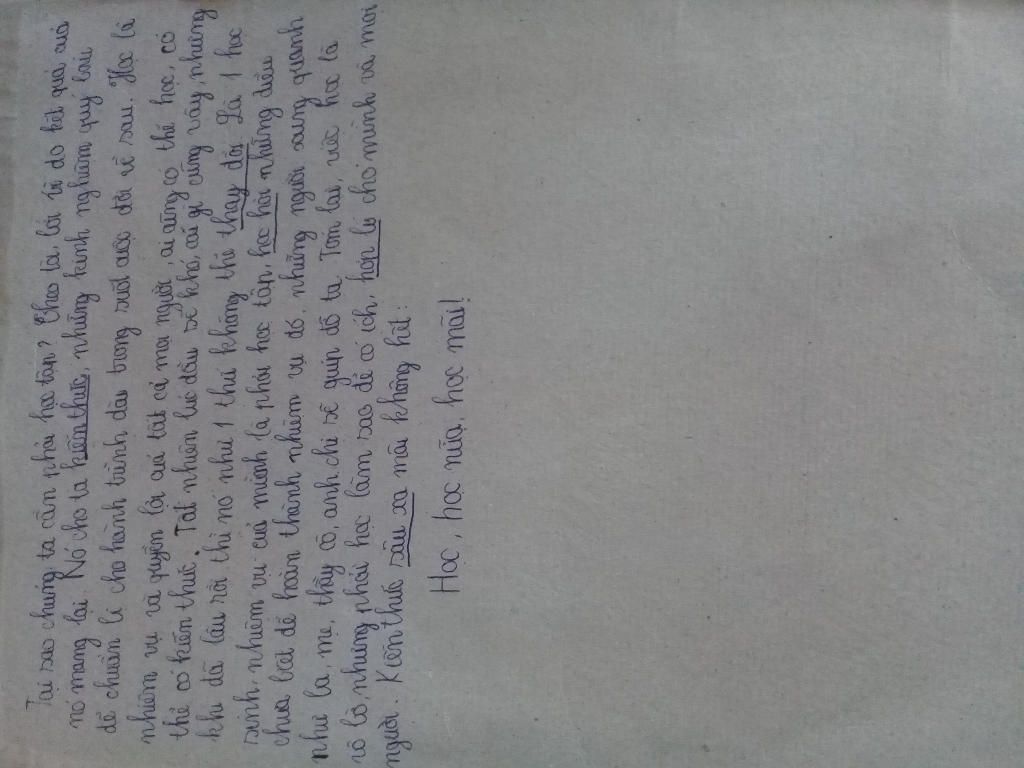 Tại sao chúng ta cần phải học tập? Theo tôi, lợi là do kết quả mà
nó mang lại. Nó cho ta kiến thức, những kinh nghiệm quý báu
để chuẩn bị cho hành trình dài trong suốt cuộc đời về sau. Học là
nhiệm vụ và quyền lợi của tất cả mọi người, ai cũng có thể học, có
thể có kiến thức. Tất nhiên lúc đầu sẽ khó, cái gì cũng vậy nhưng
khi đã lâu rồi thì nó như 1 thú không thể thay đổi. Là 1 học
sinh nhiệm vụ của mình là phải học tập, học hỏi những điều
chưa biết để hoàn thành nhiệm vụ đó, những người xung quanh
như ba, mẹ, thầy cô, anh chị sẽ giúp đỡ ta. Tóm lại, việc học là
vô bờ, nhưng phải học làm sao để có ích, hợp lý cho mình và mọi
người. Kiến thức sâu xa mãi không hết:
Học, học nữa, học mãi!